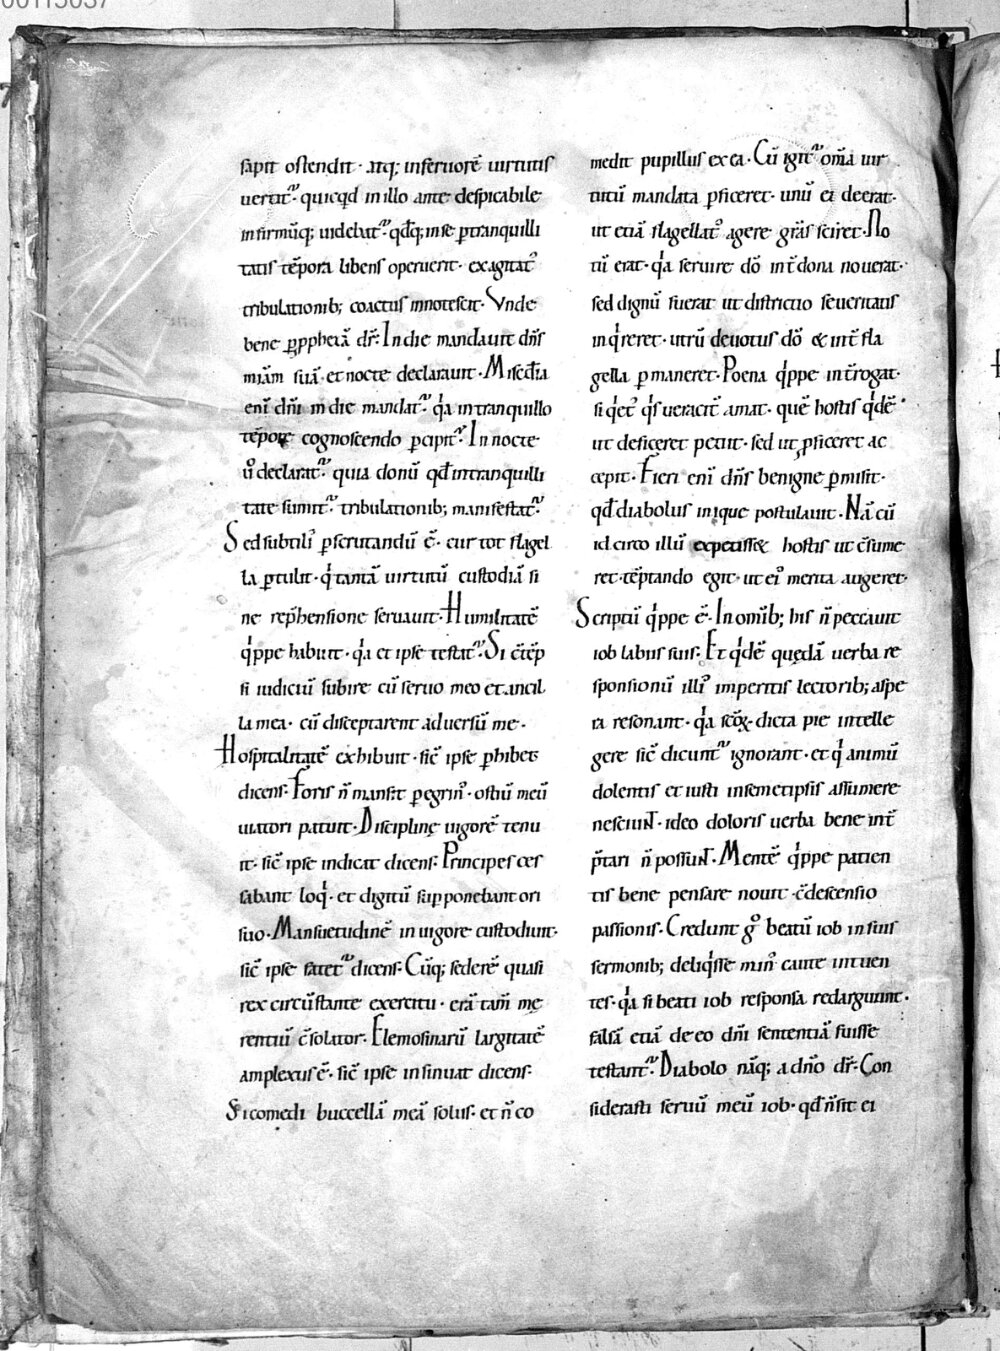 00115037
sapit ostendit · atq; in feruorē uirtutis
uertit᷑ · quicqd in illo ante despicabile
infirmūq; uidebat᷑ · qđq; in se ptranquilli
tatis tēpora libens operuerit · exagitat᷑
tribulationib; coactus innotescit · Vnde
bene p ppħetā dr̄ · In die mandauit dn̄s
miām suā · et nocte declarauit · Misc̄dia
eni dn̄i in die mandat᷑ · qͥa in tranquillo
tēpore cognoscendo pcipit᷑ · In nocte
ū declarat᷑ · quia donū qđ in tranquilli
tate sumit᷑ · tribulationib; manifestat᷑ ·
Sed subtiliꝰ pscrutandū ē · cur tot flagel
la ptulit · qͥ tantā uirtutū custodiā si
ne rep̄hensione seruauit · Humilitatē
qͥppe habuit · qͥa et ipse testat᷑ · Si c̄tēp
si iudiciū subire cū seruo meo et ancil
la mea · cū disceptarent aduersū me ·
Hospitalitatē exhibuit · sic̄ ipse phibet
dicens · Foris n̄ mansit pegrinꝰ · ostiū meū
uiatori patuit · Disciplinę uigorē tenu
it · sic̄ ipse indicat dicens · Principes ces
sabant loqͥ · et digitū supponebant ori
suo · Mansuetudinē in uigore custodiuit ·
sic̄ ipse fatet᷑ dicens · Cūq; sederē quasi
rex circūstante exercitu · erā tam̄ mę
rentiū c̄solator · Elemosinarū largitatē
amplexus ē · sic̄ ipse insinuat dicens ·
Si comedi buccellā meā solus · et n̄ co
medit pupillus ex ea · Cū igit᷑ om̄a uir
tutū mandata pficeret · unū ei deerat ·
ut etiā flagellat᷑ agere grās sciret · No
tū erat · qͥa seruire dō int̄ dona nouerat ·
sed dignū fuerat ut districtio seueritatis
inqͥreret · utrū deuotus dō & int̄ fla
gella pmaneret · Poena qͥppe int̄rogat ·
si qͥet᷑ qͥs ueracit̄ amat · quē hostis qͥdē
ut deficeret petiit · sed ut pficeret ac
cepit · Fieri eni dn̄s benigne pmisit ·
qđ diabolus inique postulauit · Nā cū
idcirco illū expetisset hostis ut c̄sume
ret · tēptando egit · ut eiꝰ merita augeret ·
Scriptū qͥppe ē · In om̄ib; his n̄ peccauit
iob labiis suis · Et qͥdē quędā uerba re
sponsionū illiꝰ imperitis lectorib; aspe
ra resonant · qͥa sc̄oꝝ dicta pie intelle
gere sic̄ dicunt᷑ ignorant · et qͥ animū
dolentis et iusti in semetipsis assumere
nesciunt · ideo doloris uerba bene int̄
p̄tari n̄ possunt · Mentē qͥppe patien
tis bene pensare nouit · c̄descensio
passionis · Credunt gͦ beatū iob in suis
sermonib; deliqͥsse minꝰ caute intuen
tes · qͥa si beati iob responsa redarguunt ·
falsā etiā de eo dn̄i sententiā fuisse
testant᷑ · Diabolo nāq; a dn̄o dr̄ · Con
siderasti seruū meū iob · qđ n̄ sit ei